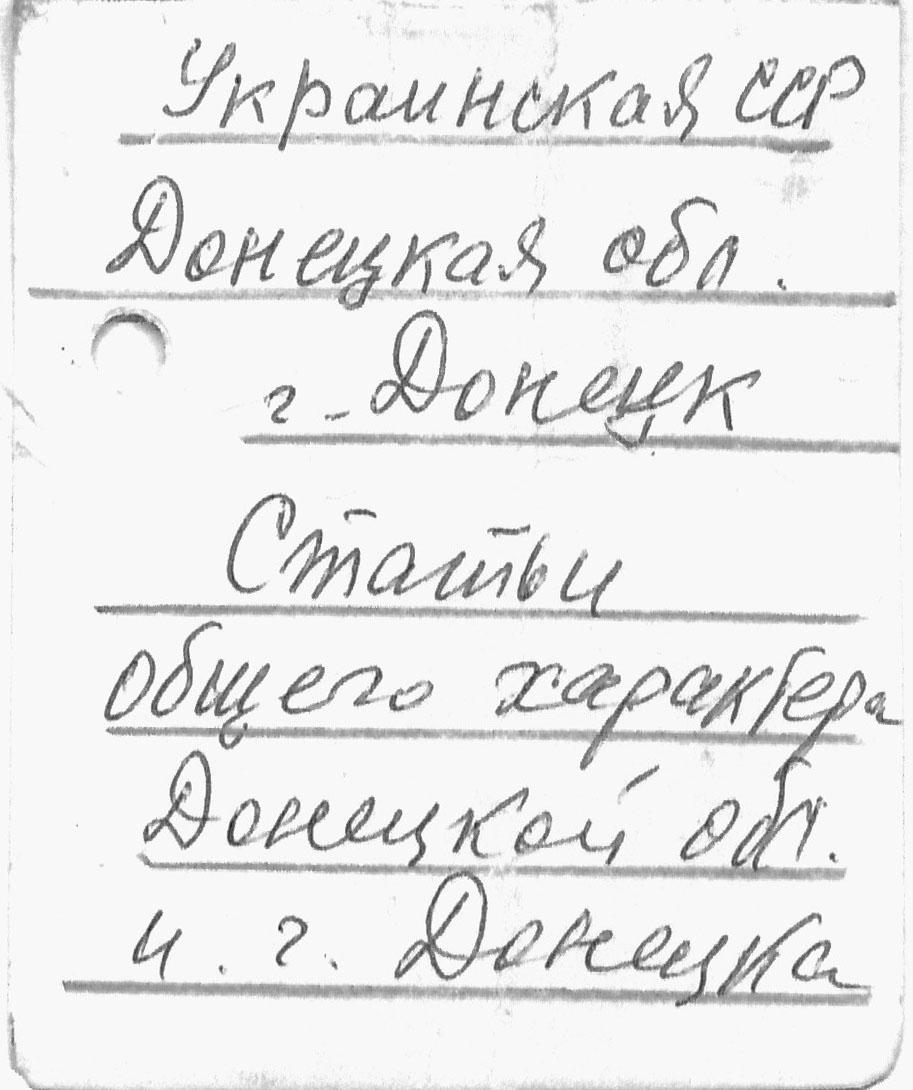 Украинская ССР
Донецкая обл.
г. Донецк
Статьи
общего характера
Донецкой обл.
и. г. Донецка